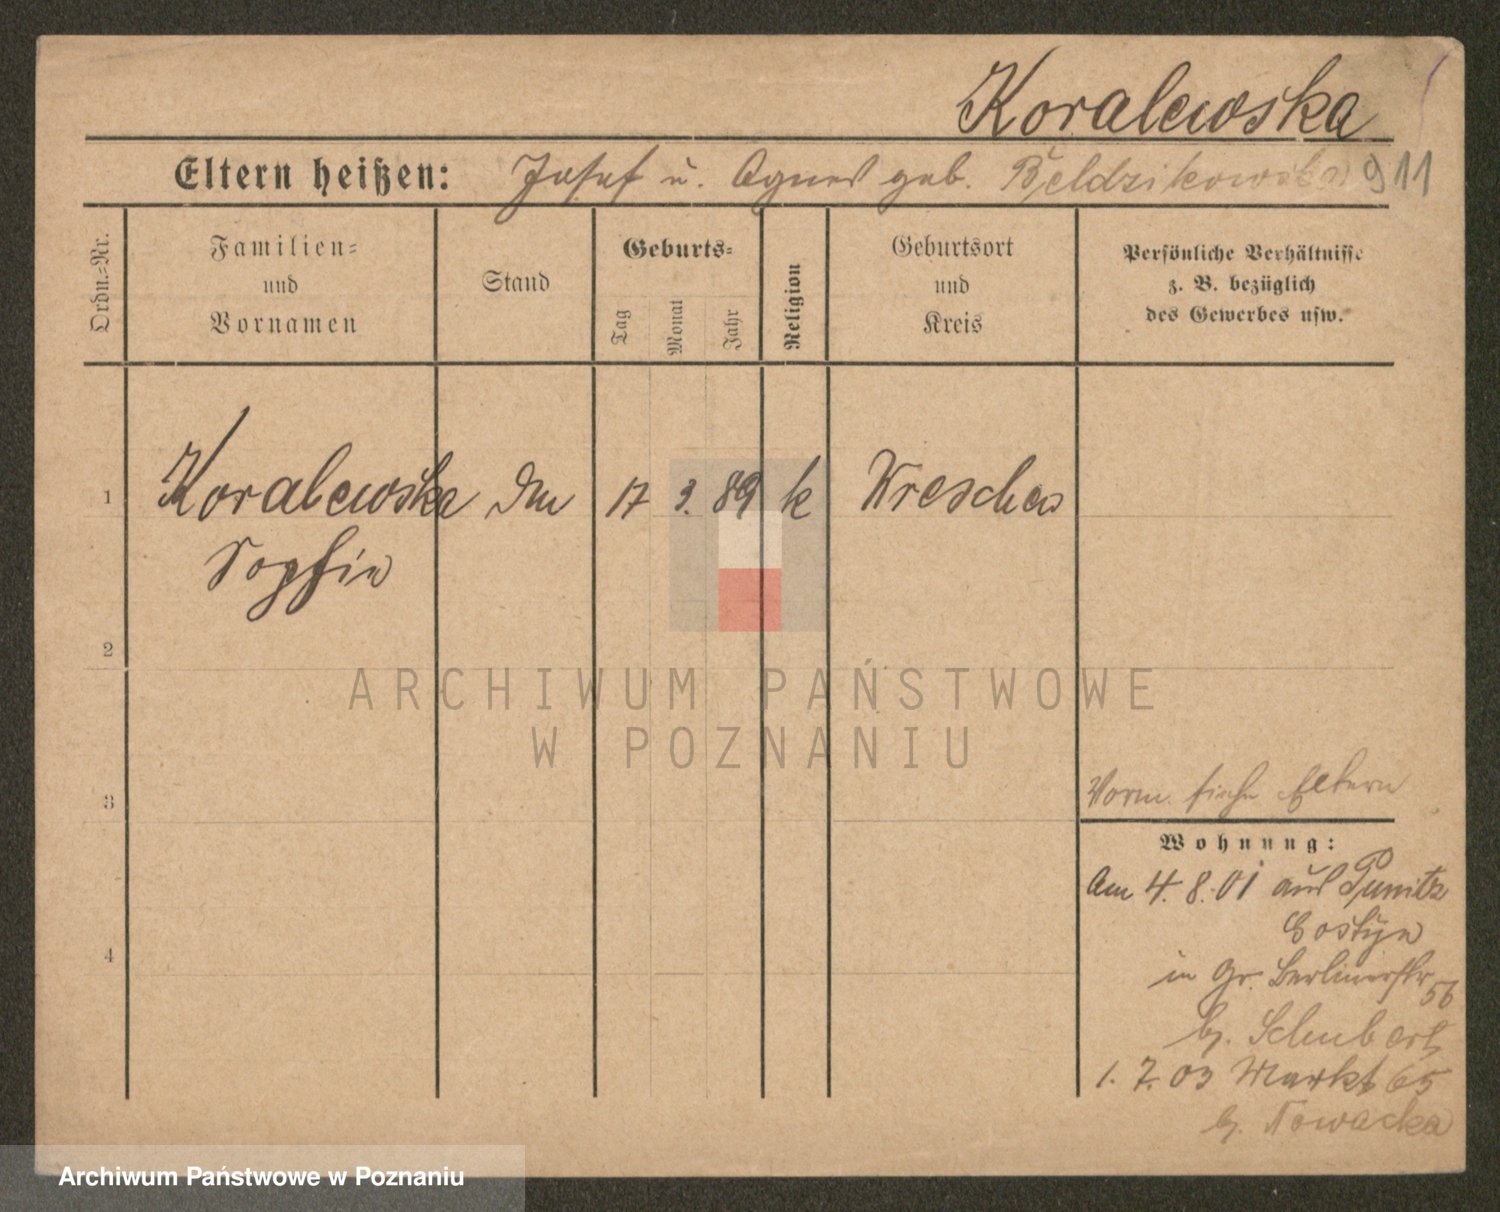 Koralewska
Eltern heißen: Josef u. Agnes geb. 911
Ordn.=Nr.
Familien=
und
Vornamen
Stand
Geburts=
Tag
Monat
Jahr
Religion
Geburtsort
und
Kreis
Persönliche Verhältnisse
z. B. bezüglich
des Gewerbes usw.
1 Koralewska 17 3. 89 k Wreschen
Sophie
2
3
4
Vorm. siehe Eltern
Wohnung:
Am 4. 8. 01 aus Punitz
Gostyn
in Gr. Berlinerstr
56
b. Schubert
1. 7. 03 Markt 65
b. Nowacka
ARCHIWUM PAŃSTWOWE
W POZNANIU
Archiwum Państwowe w Poznaniu